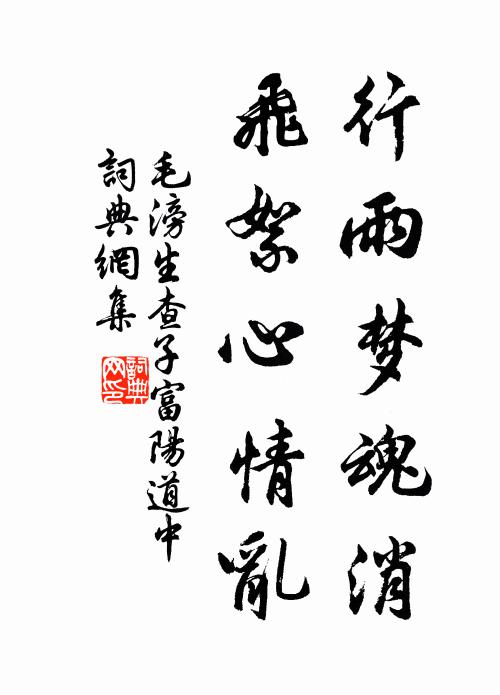 行雨梦魂消
飛絮心情亂
毛滂生查子富陽道中
詞典網集
詞典网印